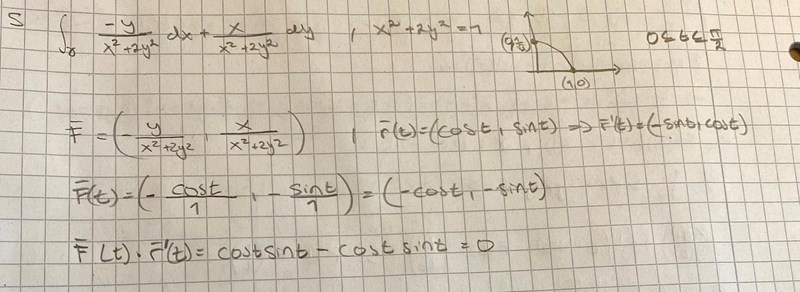 S ∫_γ -y/(x²+2y²) dx + x/(x²+2y²) dy , x²+2y²=1 (1,0) 0≤φ≤π/2
F̄ = (-y/(x²+2y²), x/(x²+2y²)) , r̄(t)=(cost, sint) => r̄'(t)=(-sint, cost)
F̄(t)=(-cost/1, -sint/1) = (-cost, -sint)
F̄(t)·r̄'(t)= costsint - costsint = 0